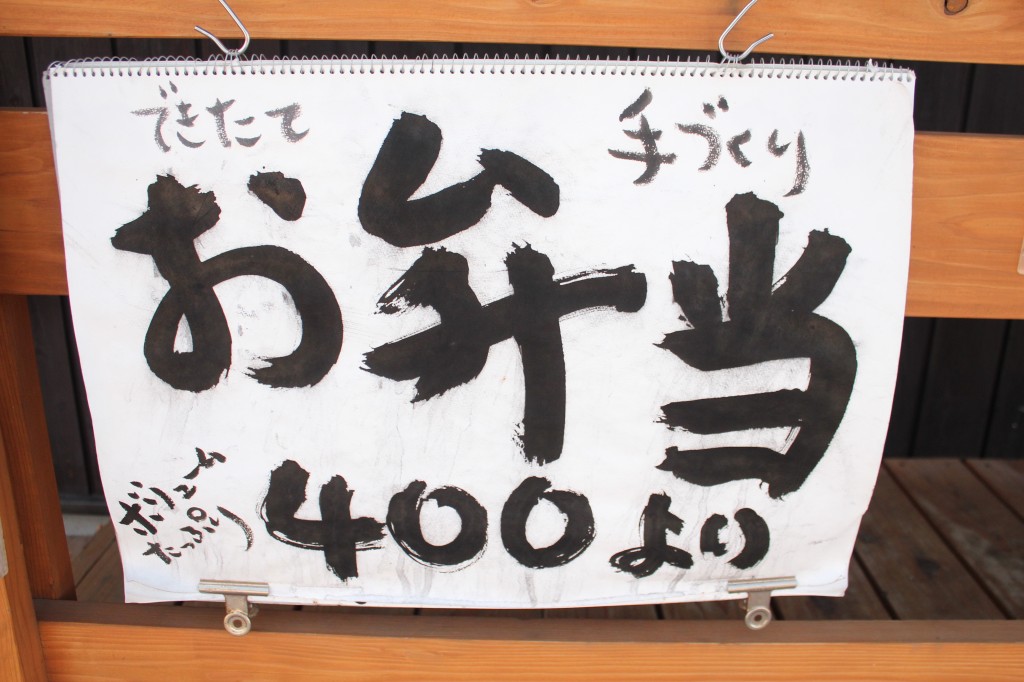 できたて 手づくり
お弁当
ボリューム
たっぷり
400より